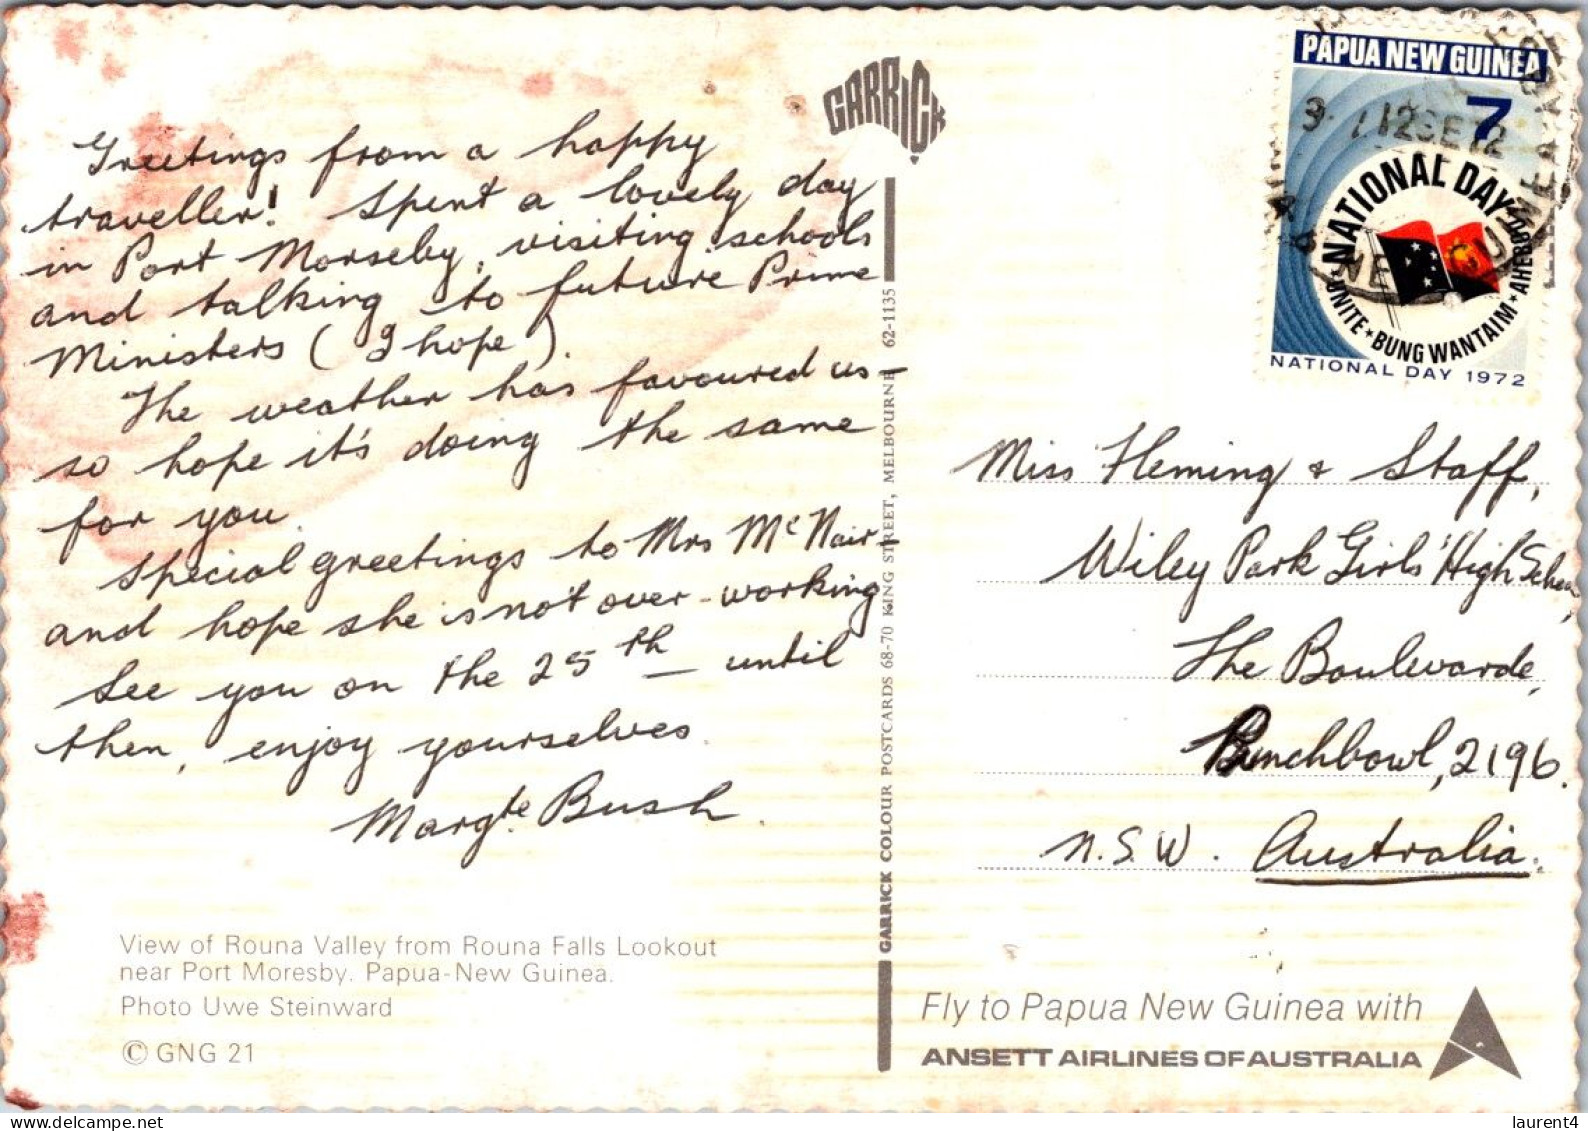 Greetings from a happy
traveller! Spent a lovely day
in Port Morseby, visiting schools
and talking to future Prime
Ministers (I hope).
The weather has favoured us –
so hope it's doing the same
for you.
Special greetings to Mrs McNair –
and hope she is not over-working
See you on the 25th – until
then, enjoy yourselves.
Margte. Bush.
View of Rouna Valley from Rouna Falls Lookout
near Port Moresby. Papua-New Guinea.
Photo Uwe Steinward
© GNG 21
GARRICK
GARRICK COLOUR POSTCARDS 68-70 KING STREET, MELBOURNE 62-1135
PAPUA NEW GUINEA
7
12SE72
NATIONAL DAY
UNITE ★ BUNG WANTAIM ★ AHEBOU
NATIONAL DAY 1972
Miss Fleming & Staff,
Wiley Park Girls' High School,
The Boulevarde,
Punchbowl, 2196.
N.S.W. Australia.
Fly to Papua New Guinea with
ANSETT AIRLINES OF AUSTRALIA
delcampe.net
laurent4